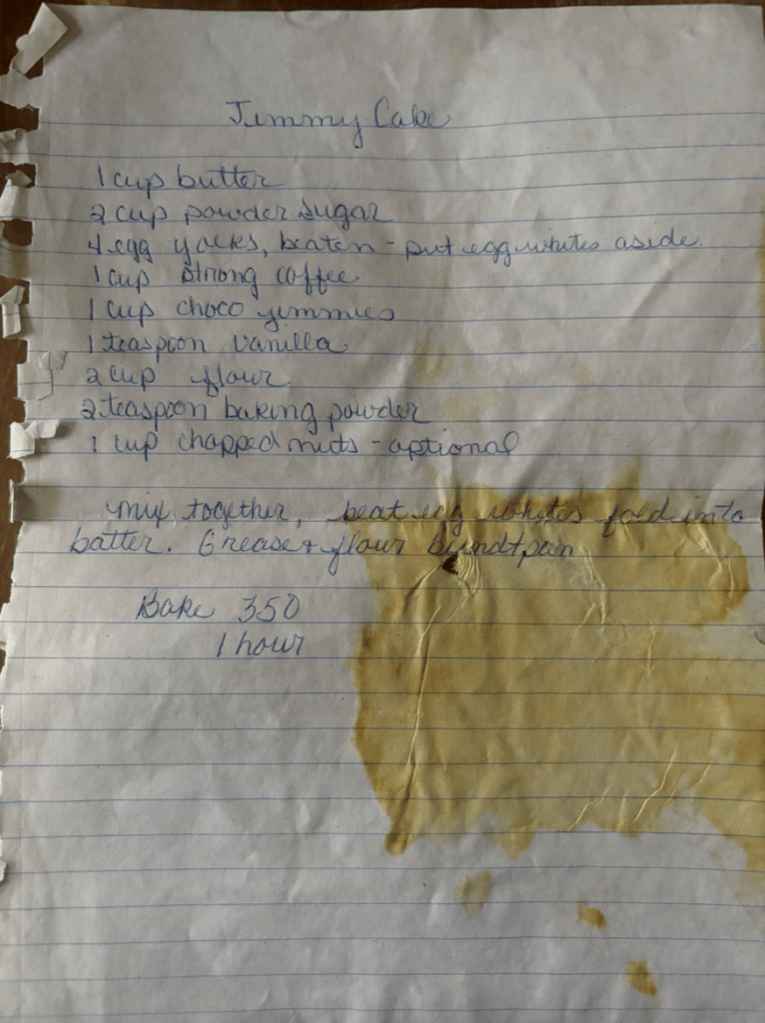 Jimmy Cake
1 cup butter
2 cup powder sugar
4 egg yolks, beaten - put egg whites aside.
1 cup strong coffee
1 cup choco jimmies
1 teaspoon vanilla
2 cup flour
2 teaspoon baking powder
1 cup chopped nuts - optional
mix together, beat egg whites fold into
batter. Grease + flour bundt pan
Bake 350
1 hour